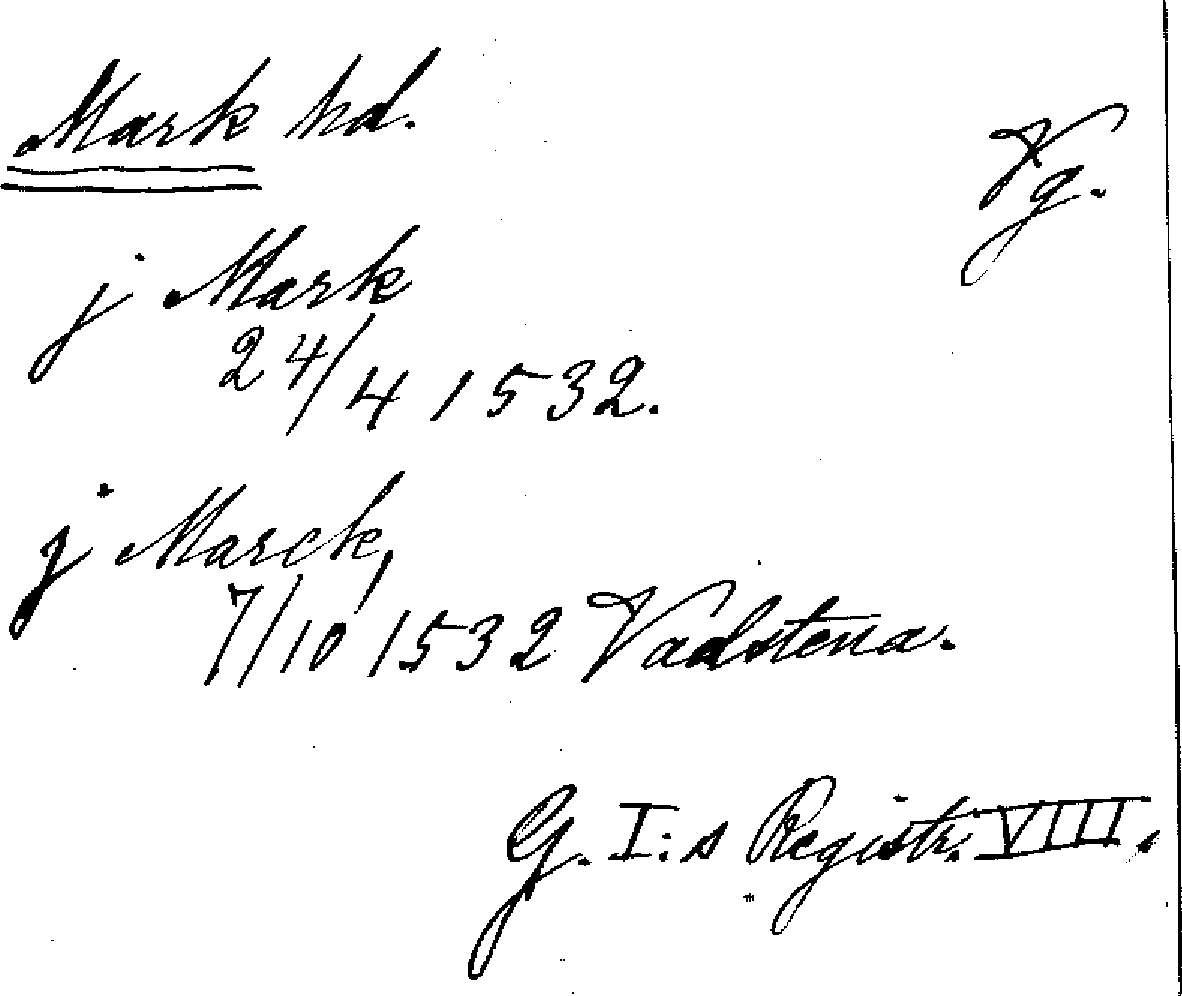 Mark hd.
Vg.
j Mark
24/4 1532.
j Marck,
7/10 1532 Vadstena.
G. I:s Registr. VIII.